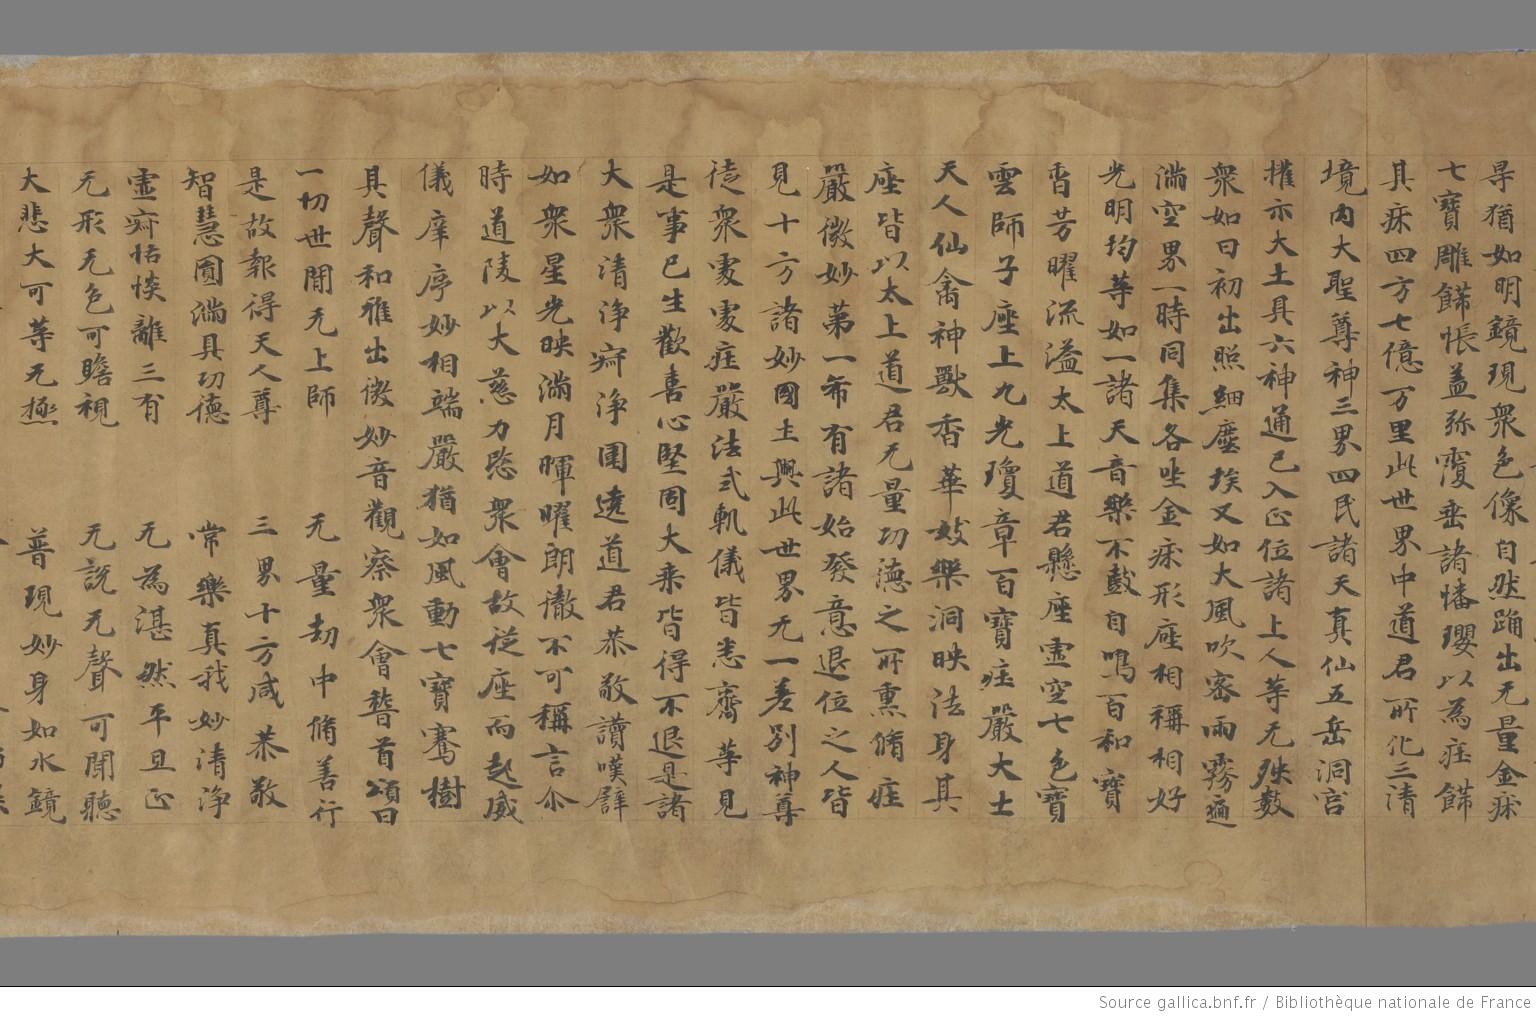 晷猶如明鏡現衆色像自然踊出无量金床
七寶雕餝帳盖弥覆垂諸幡瓔以為莊餝
其床四方七億万里此世界中道君所化三清
境內大聖尊神三界四民諸天真仙五岳洞宫
擢示大士具六神通已入正位諸上人等无殃數
衆如日初出照細塵埃又如大風吹密雨霧遍
滿空界一時同集各坐金床形座相稱相好
光明均等如一諸天音樂不鼓自鳴百和寶
香芳曜流溢太上道君懸座虛空七色寶
雲師子座上九光瓊章百寶莊嚴大士
天人仙禽神獸香華妓樂洞映法身其
座皆以太上道君无量功德之所熏脩莊
嚴微妙第一希有諸始發意退位之人皆
見十方諸妙國土興此世界无一差别神尊
徒衆處處莊嚴法式軌儀皆悉齊等見
是事已生歡喜心堅固大乘皆得不退是諸
大衆清浄寂浄圍遶道君恭敬讚嘆辟
如衆星光映滿月暉曜朗徹不可稱言尒
時道陵以大慈力愍衆會故從座而起威
儀庠序妙相端嚴猶如風動七寶騫樹
具聲和雅出微妙音觀察衆會䭬首頌曰
一切世間无上師 无量劫中脩善行
是故報得天人尊 三界十方咸恭敬
智慧圓滿具功德 常樂真我妙清浄
虛寂恬惔離三有 无為湛然平且正
无形无色可瞻視 无說无聲可聞聽
大悲大可等无極 普現妙身如水鏡
Source gallica.bnf.fr / Bibliothèque nationale de France